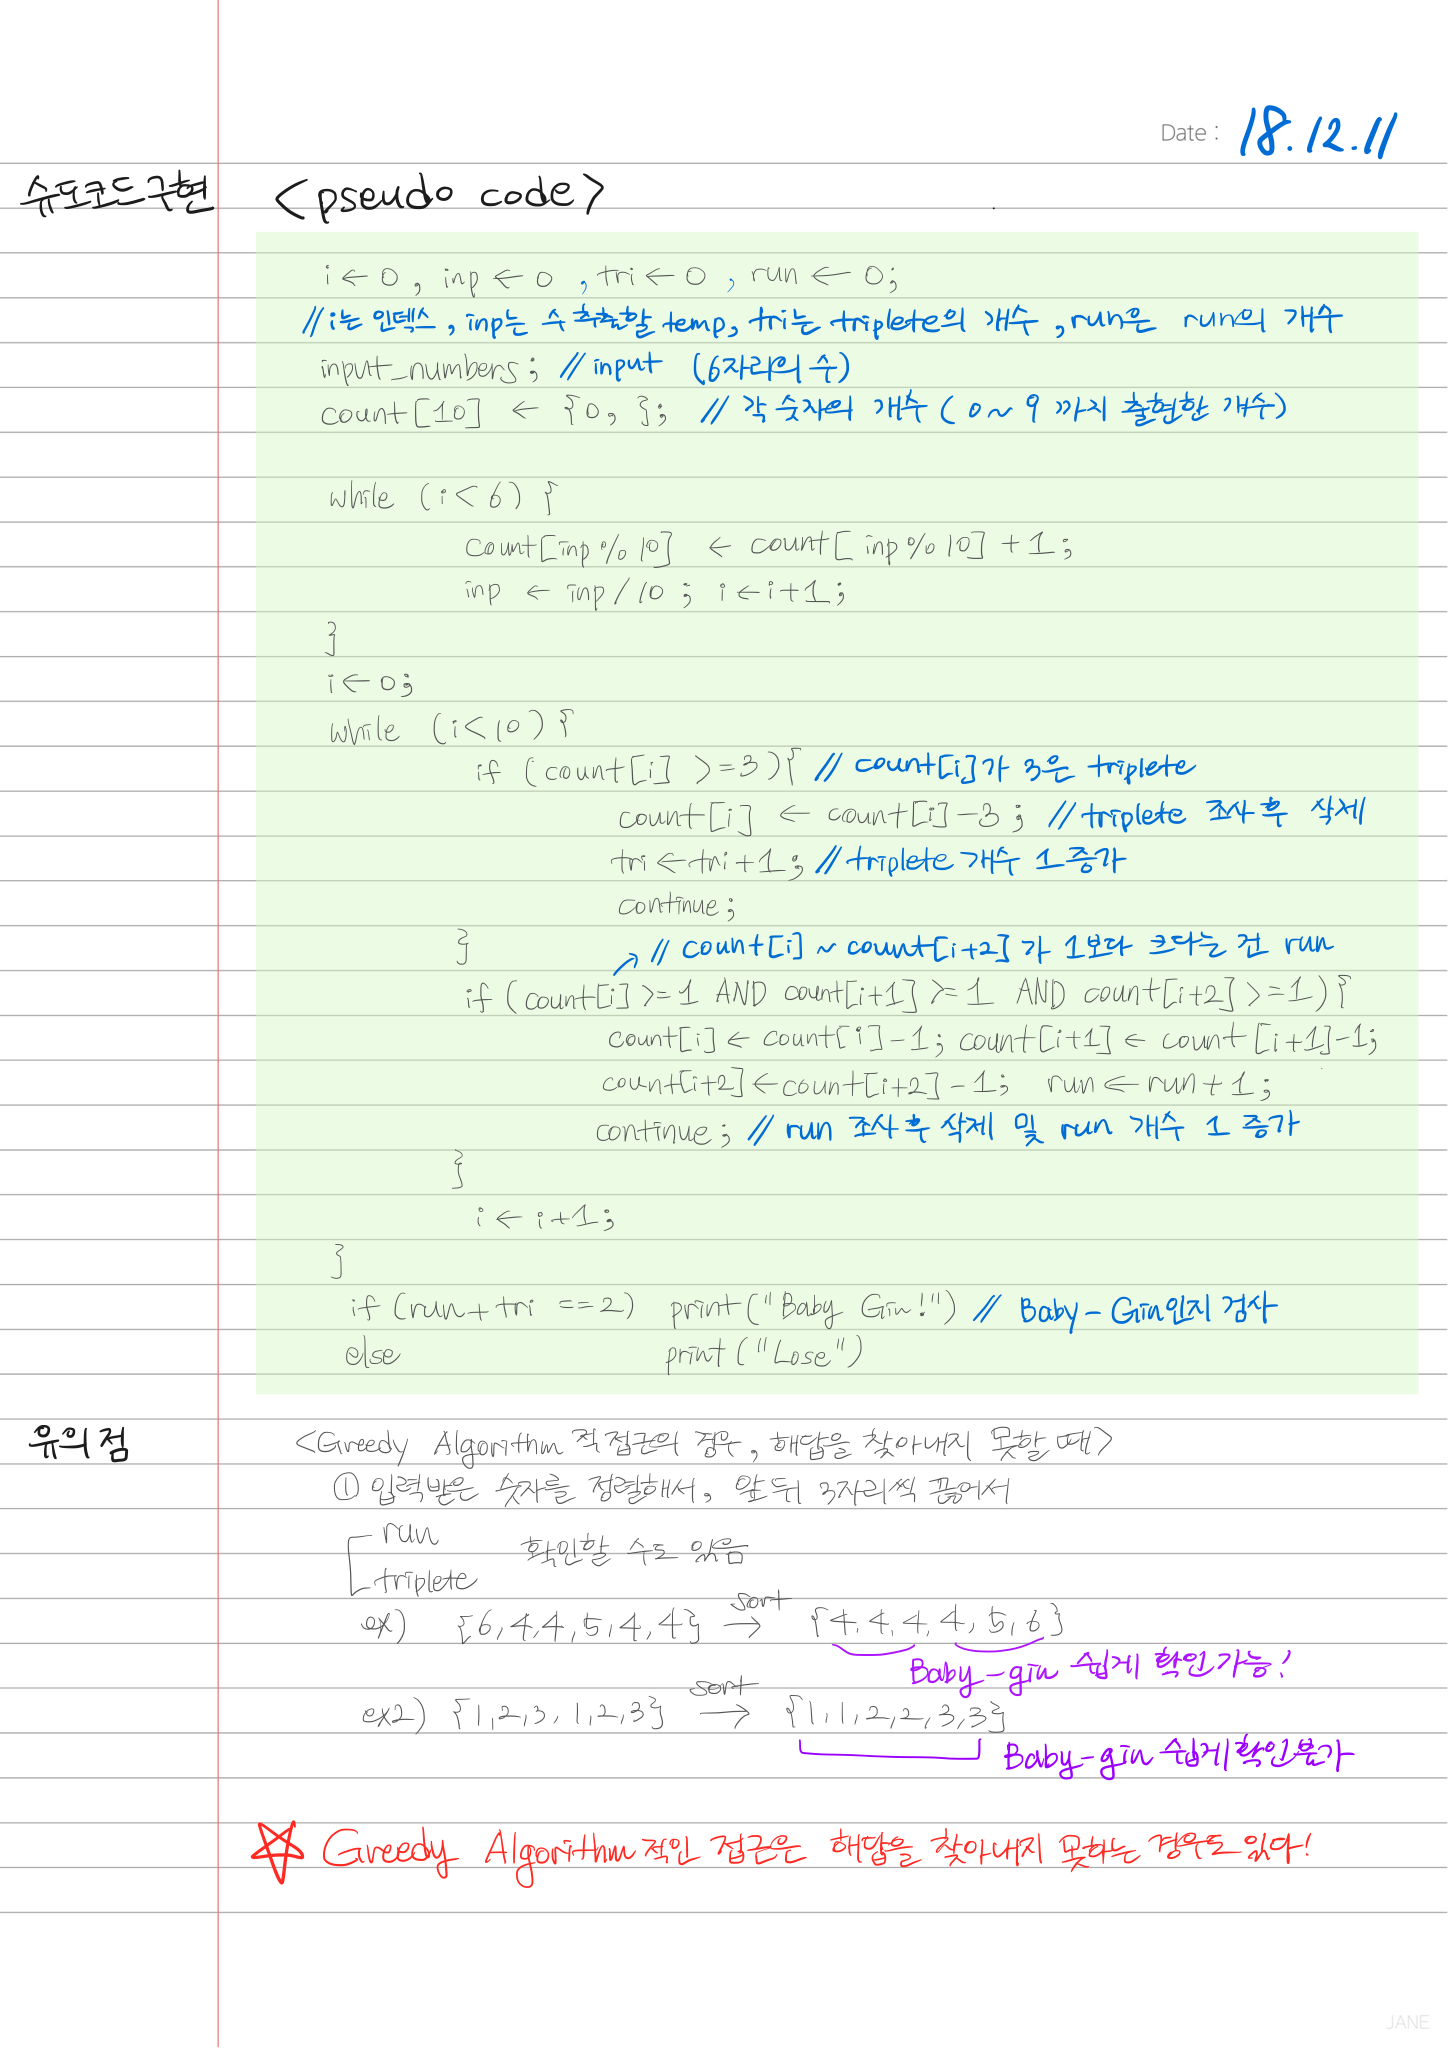 Date : 18.12.11
슈도코드 구현 <pseudo code>
i ← 0 , inp ← 0 , tri ← 0 , run ← 0;
// i는 인덱스, inp는 수 추출할 temp, tri는 triplete의 개수, run은 run의 개수
input_numbers; // input (6자리의 수)
count[10] ← {0, }; // 각 숫자의 개수 (0~9 까지 출현한 개수)
while (i<6) {
count[inp%10] ← count[inp%10] +1;
inp ← inp/10 ; i←i+1;
}
i←0;
while (i<10) {
if (count[i] >=3){ // count[i]가 3은 triplete
count[i] ← count[i]-3 ; // triplete 조사 후 삭제
tri ← tri+1; // triplete 개수 1증가
continue;
} // count[i] ~ count[i+2] 가 1보다 크다는 건 run
if (count[i]>=1 AND count[i+1] >=1 AND count[i+2] >=1){
count[i] ← count[i]-1; count[i+1] ← count[i+1]-1;
count[i+2] ← count[i+2]-1; run ← run+1;
continue; // run 조사 후 삭제 및 run 개수 1 증가
}
i ← i+1;
}
if (run+tri ==2) print("Baby Gin!") // Baby-Gin인지 검사
else print("Lose")
유의점 <Greedy Algorithm적 접근의 경우, 해답을 찾아내지 못할 때>
① 입력받은 숫자를 정렬해서, 앞뒤 3자리씩 끊어서
run
확인할 수도 있음
triplete
ex) {6,4,4,5,4,4} sort → {4,4,4,4,5,6}
Baby-gin 쉽게 확인가능!
ex2) {1,2,3,1,2,3} sort → {1,1,2,2,3,3}
Baby-gin 쉽게 확인불가
☆ Greedy Algorithm적인 접근은 해답을 찾아내지 못하는 경우도 있다!
JANE